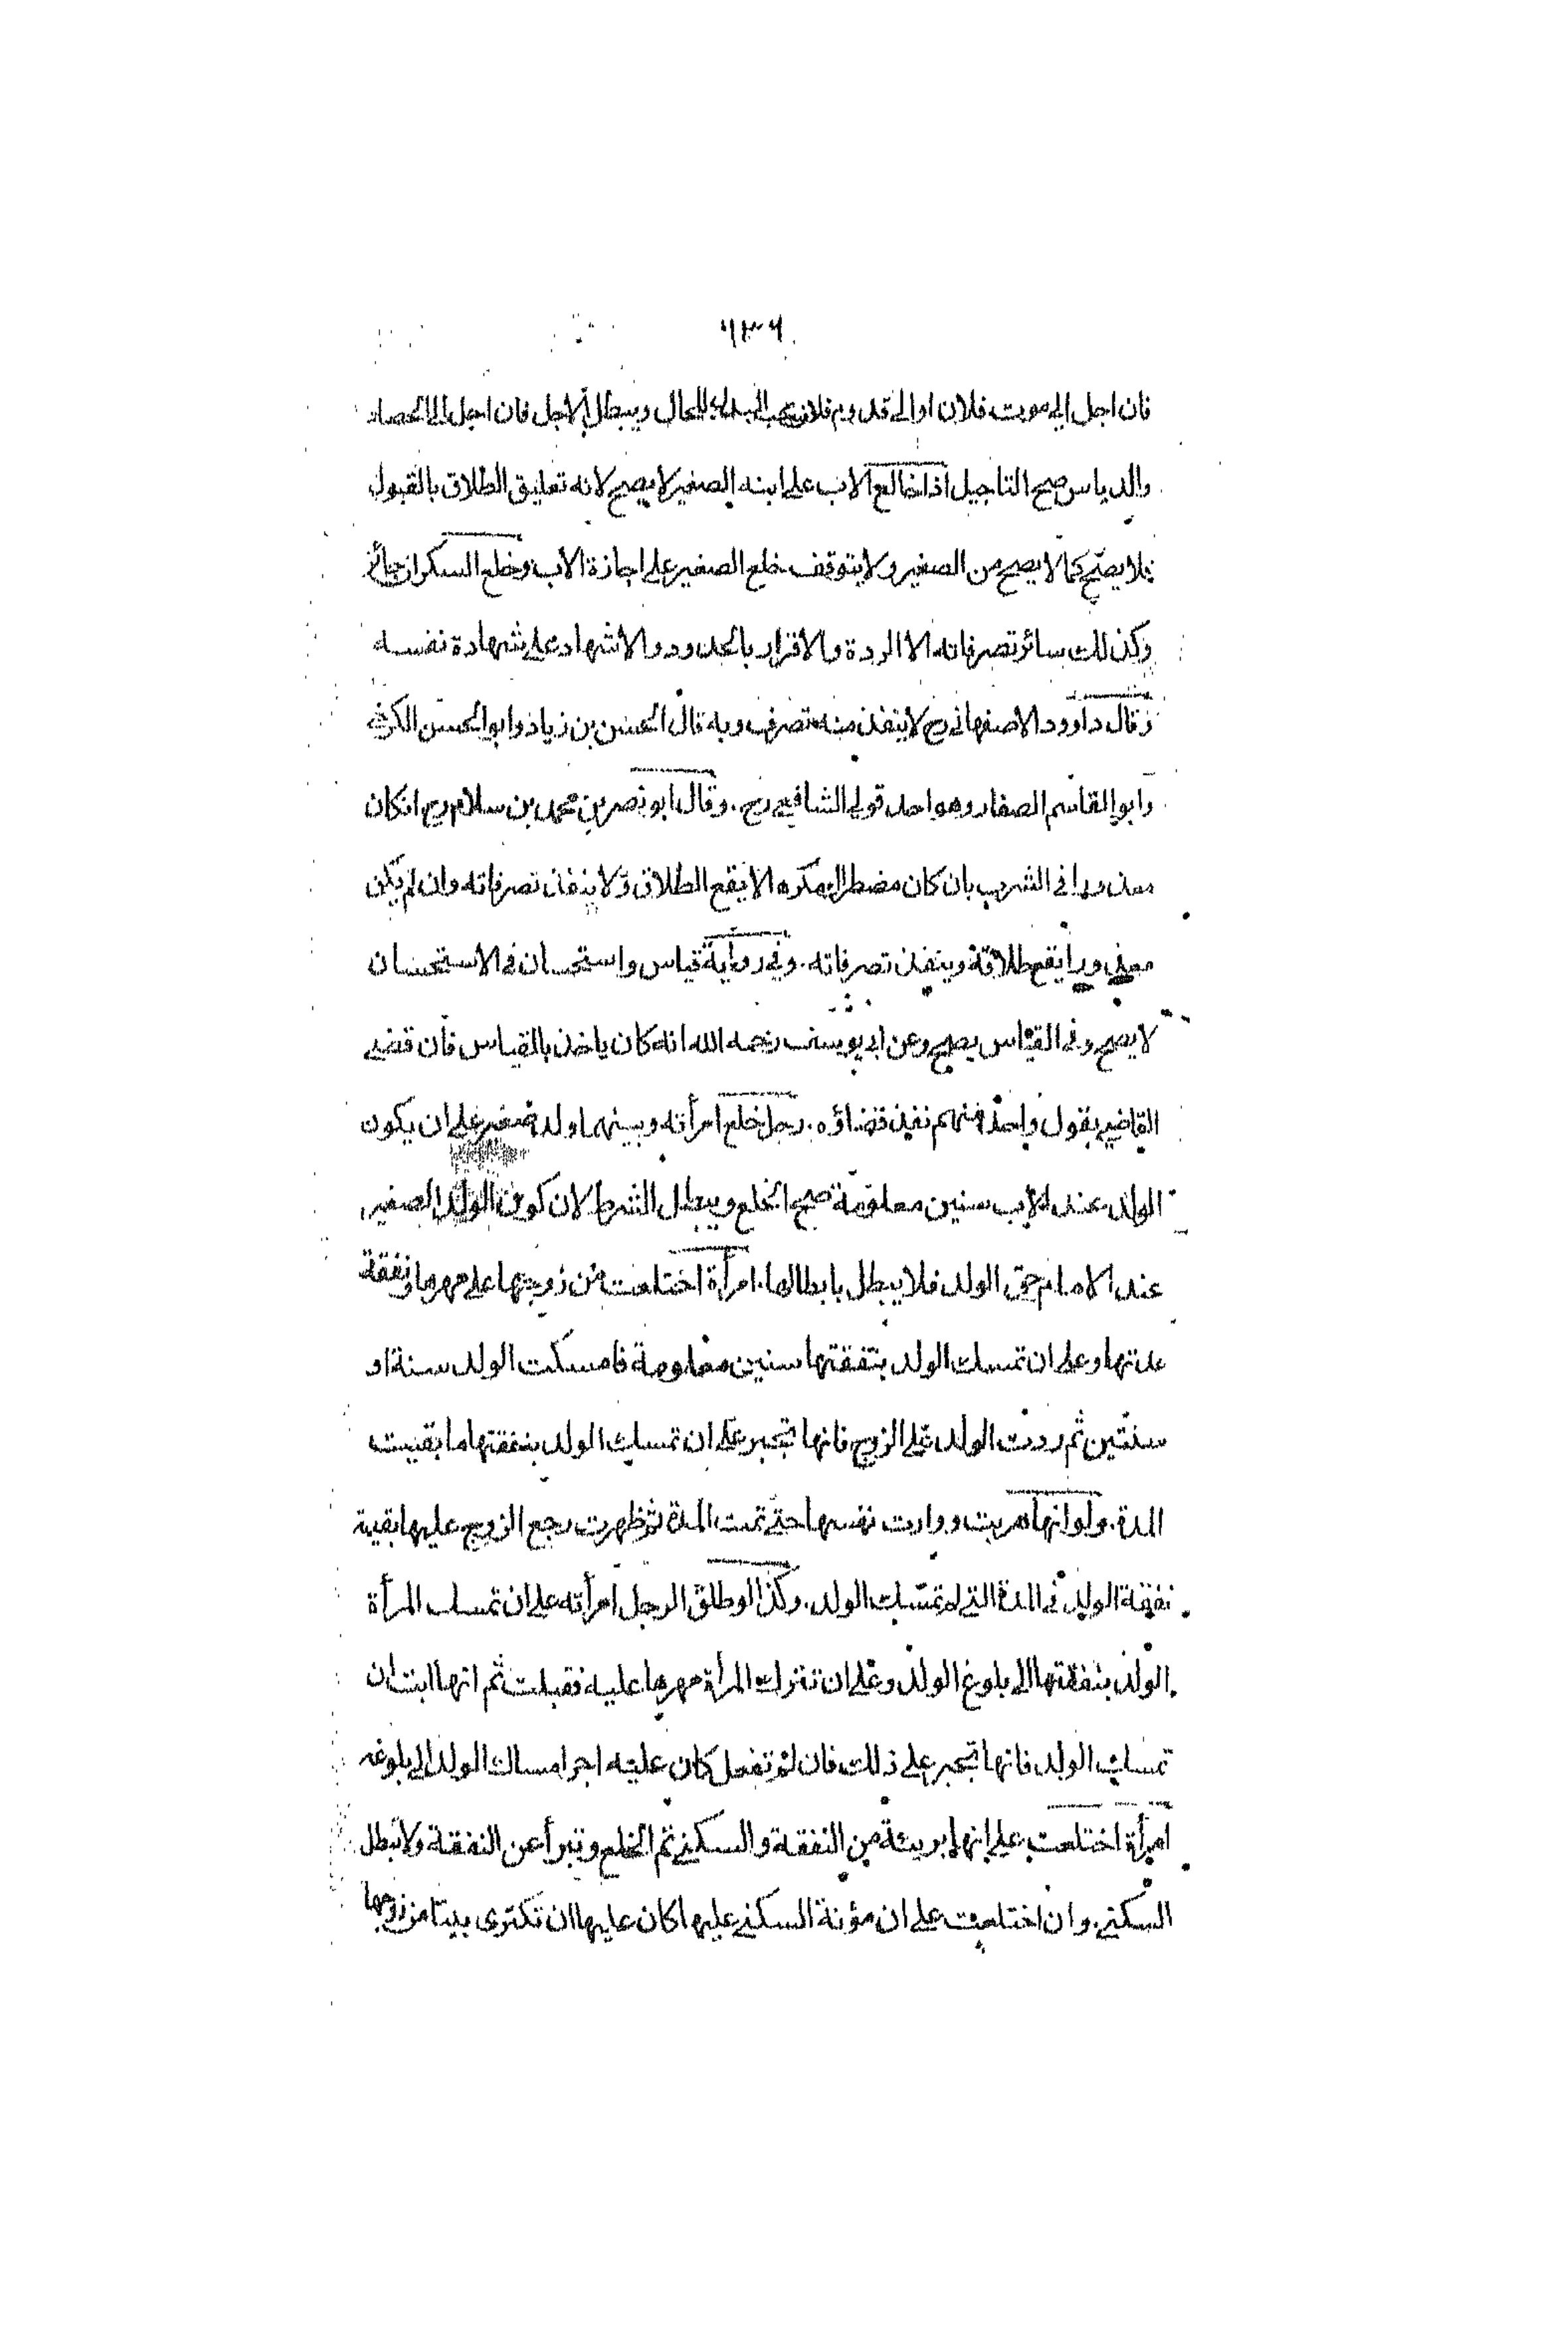 ٦٣٦
فان اجل الى موت فلان او الى قدوم فلان يجب البدل للحال ويبطل الاجل فان اجل الى الحصاد
والدياس صح التاجيل اذا خالع الاب على ابنه الصغير لا يصح لانه تعليق الطلاق بالقبول
فلا يصح كما لا يصح من الصغير ولا يتوقف خلع الصغير على اجازة الاب وخلع السكران جائز
وكذلك سائر تصرفاته الا الردة والاقرار بالحدود والاشهاد على شهادة نفسه
وقال داوود الاصفهاني رح لا ينفذ منه تصرف وبه قال الحسن بن زياد وابو الحسن الكرخي
وابو القاسم الصفار وهو احد قولي الشافعي رح. وقال ابو نصر بن محمد بن سلام رح ان كان
معذورا في الشرب بان كان مضطرا او مكرها لا يقع الطلاق ولا ينفذ تصرفاته وان لم يكن
معذورا يقع طلاقه وينفذ تصرفاته. وفي رواية قياس واستحسان في الاستحسان
لا يصح وفي القياس يصح وعن ابي يوسف رحمه الله انه كان ياخذ بالقياس فان قضى
القاضي بقول واحد منهم نفذ قضاؤه. رجل خلع امرأته وبينهما ولد صغير على ان يكون
الولد عند الاب سنين معلومة صح الخلع ويبطل الشرط لان كون الولد الصغير
عند الام حق الولد فلا يبطل بابطالها. امرأة اختلعت من زوجها على مهرها ونفقة
عدتها وعلى ان تمسك الولد بنفقتها سنين معلومة فامسكت الولد سنة او
سنتين ثم ردت الولد على الزوج فانها تجبر على ان تمسك الولد بنفقتها ما بقيت
المدة. ولو انها هربت ووارت نفسها حتى تمت المدة ثم ظهرت رجع الزوج عليها بقيية
نفقة الولد في المدة التي لم تمسك الولد. وكذا لو طلق الرجل امرأته على ان تمسك المرأة
الولد بنفقتها الى بلوغ الولد وعلى ان تترك المرأة مهرها عليه فقبلت ثم انها ابت ان
تمسك الولد فانها تجبر على ذلك فان لم تفعل كان عليه اجر امساك الولد الى بلوغه
امرأة اختلعت على انها بريئة من النفقة والسكنى تم الخلع وتبرأ عن النفقة ولا تبطل
السكنى. وان اختلعت على ان مؤنة السكنى عليها كان عليها ان تكترى بيتا من زوجها